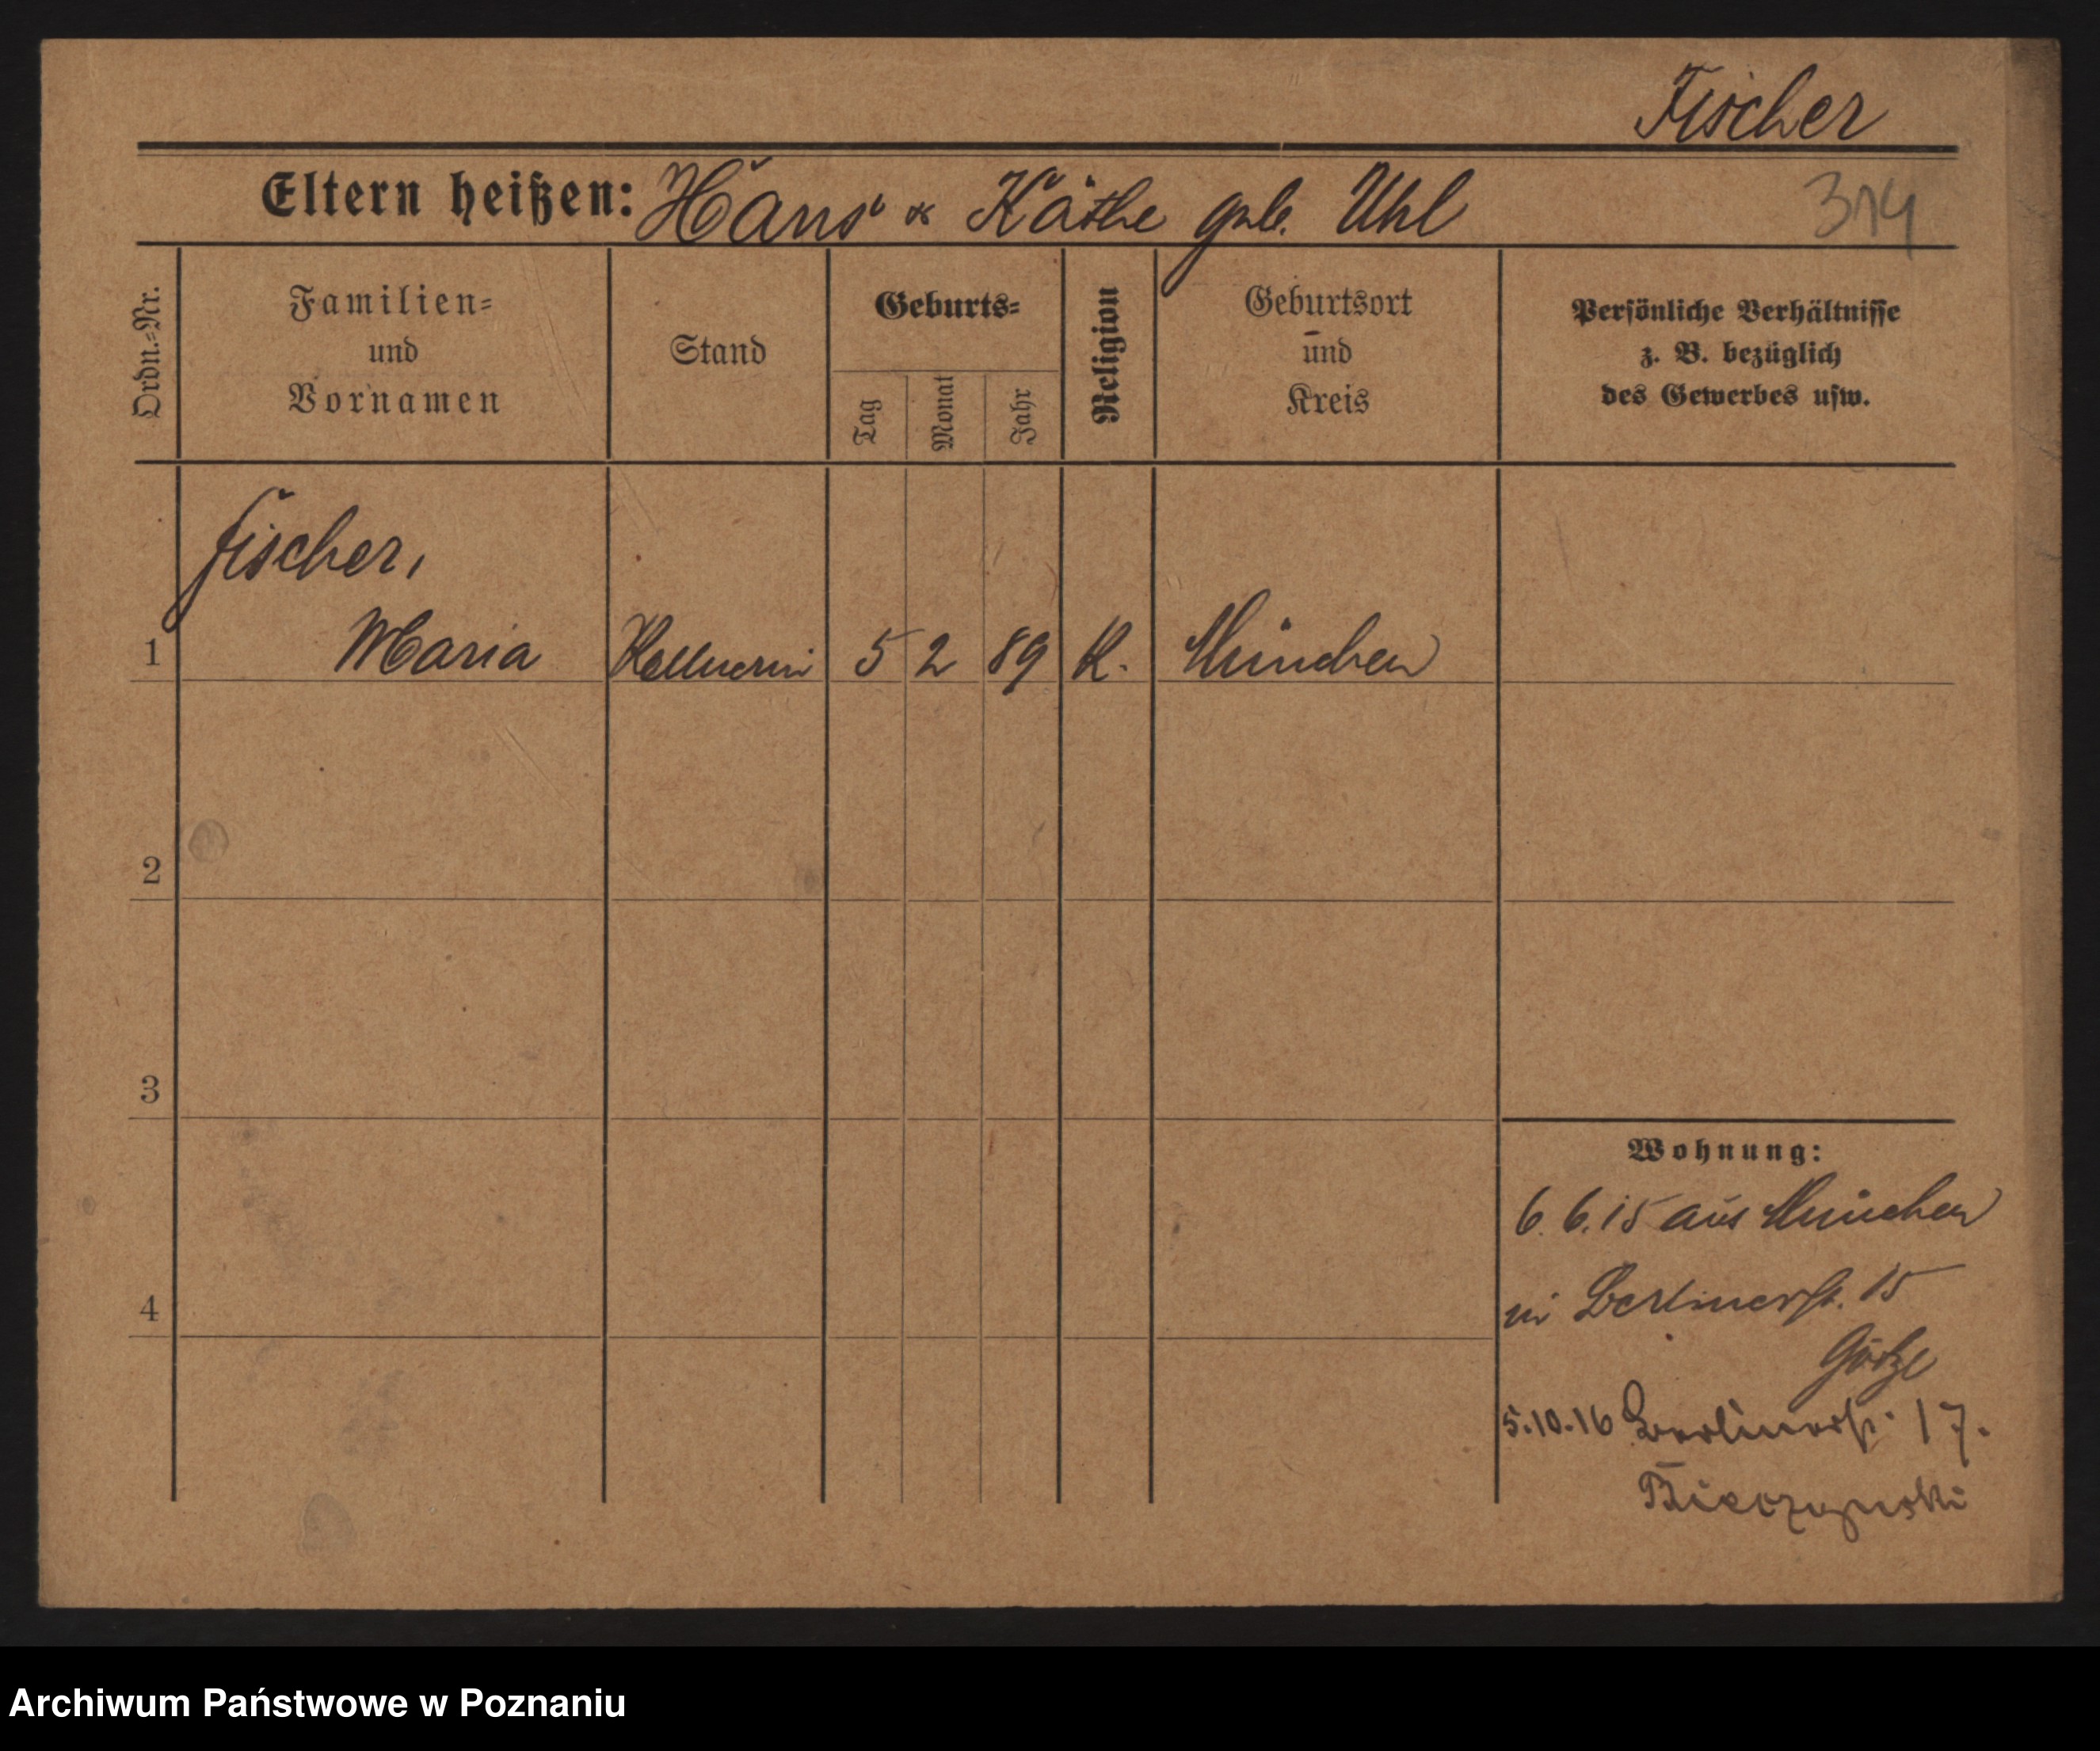 Fischer
Eltern heißen: Hans & Käthe geb. Uhl
314
Ordn.=Nr.
Familien=
und
Vornamen
Stand
Geburts=
Tag
Monat
Jahr
Religion
Geburtsort
und
Kreis
Persönliche Verhältnisse
z. B. bezüglich
des Gewerbes usw.
Fischer,
1 Maria Kellnerin 5 2 89 K. München
2
3
4
Wohnung:
6. 6. 15 aus München
in Berlinerstr. 15
Götze
5.10.16 Berlinerstr. 17.
Bieczynski
Archiwum Państwowe w Poznaniu